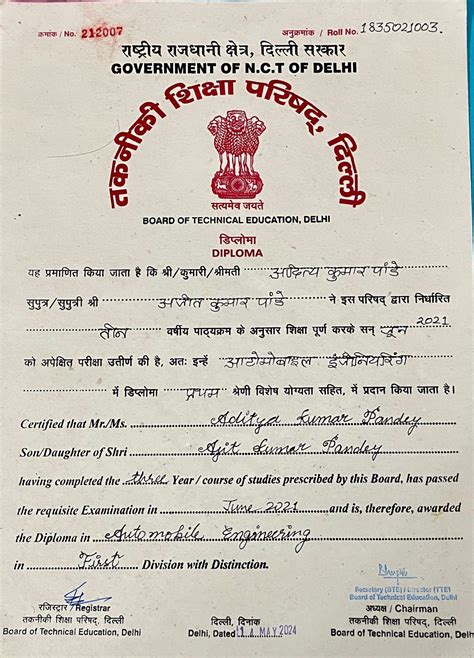 क्रमांक / No. 212007
अनुक्रमांक / Roll No. 1835021003.
राष्ट्रीय राजधानी क्षेत्र, दिल्ली सरकार
GOVERNMENT OF N.C.T OF DELHI
तकनीकी शिक्षा परिषद्, दिल्ली
सत्यमेव जयते
BOARD OF TECHNICAL EDUCATION, DELHI
डिप्लोमा
DIPLOMA
यह प्रमाणित किया जाता है कि श्री/कुमारी/श्रीमती आदित्य कुमार पांडे
सुपुत्र/सुपुत्री श्री अजीत कुमार पांडे ने इस परिषद् द्वारा निर्धारित
तीन वर्षीय पाठ्यक्रम के अनुसार शिक्षा पूर्ण करके सन् जून 2021
को अपेक्षित परीक्षा उतीर्ण की है, अतः इन्हें ऑटोमोबाइल इंजीनियरिंग
में डिप्लोमा प्रथम श्रेणी विशेष योग्यता सहित, में प्रदान किया जाता है।
Certified that Mr./Ms. Aditya Kumar Pandey
Son/Daughter of Shri Ajit Kumar Pandey
having completed the three Year / course of studies prescribed by this Board, has passed
the requisite Examination in June 2021 and is, therefore, awarded
the Diploma in Automobile Engineering
in First Division with Distinction.
रजिस्ट्रार / Registrar
तकनीकी शिक्षा परिषद्, दिल्ली
Board of Technical Education, Delhi
दिल्ली, दिनांक
Delhi, Dated MAY 2024
Secretary (BTE) / Director (TTE)
Board of Technical Education, Delhi
अध्यक्ष / Chairman
तकनीकी शिक्षा परिषद्, दिल्ली
Board of Technical Education, Delhi